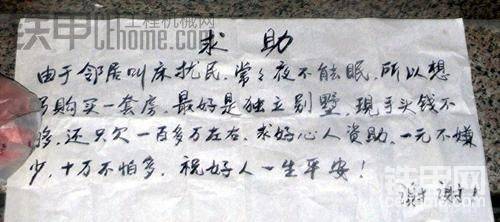 铁甲 工程机械网
cehome.com
求 助
由于邻居叫床扰民,常々夜不能眠,所以想
另购买一套房,最好是独立别墅,现手头钱不
够,还只欠一百多万左右,求好心人资助,一元不嫌
少,十万不怕多,祝好人一生平安!
谢谢!